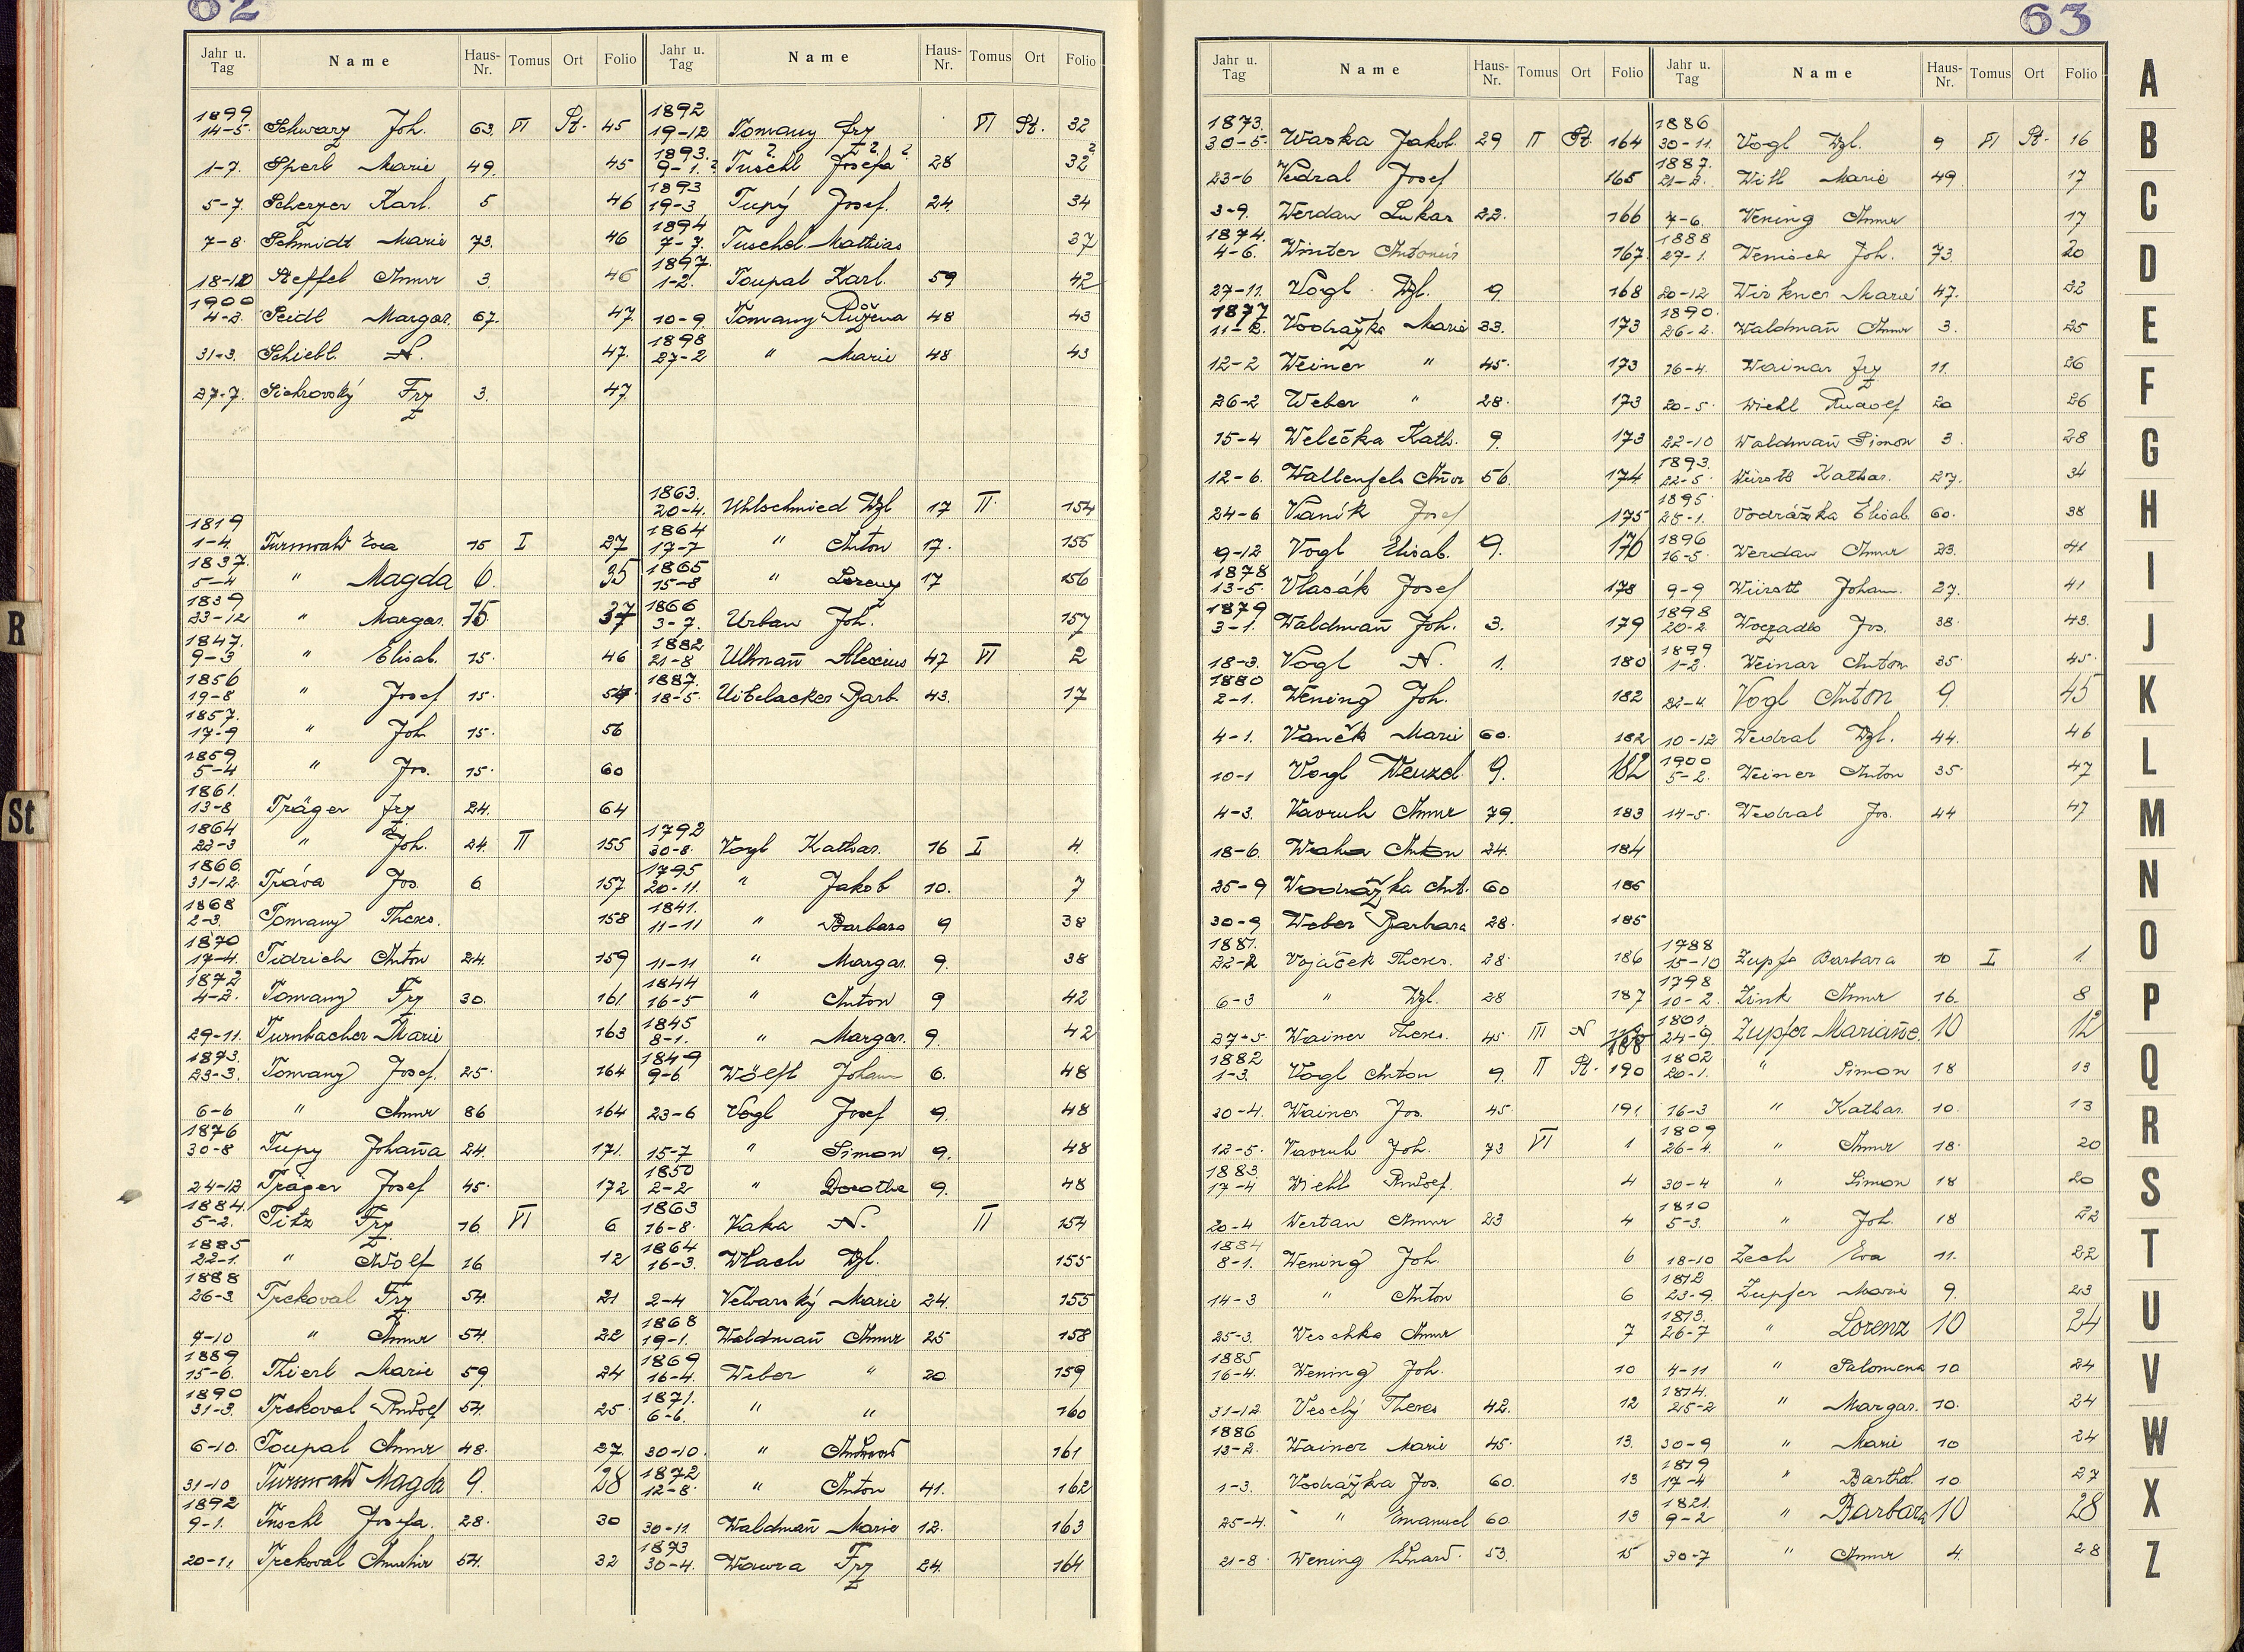 62
Jahr u. Tag Name Haus-Nr. Tomus Ort Folio
1899
14-5. Schwarz Joh. 63. VI St. 45
1-7. Sperl Marie 49. 45
5-7. Scherzer Karl. 5 46
7-8. Schmidt Marie 73. 46
18-12 Steffel Anna 3. 46
1900
4-2. Seidl Margar. 67. 47.
31-3. Schiebl N. 47.
27-7. Sichrovský Frz 3. 47.
1819
1-4. Turnwald Eva 15 I 27
1837.
5-4 " Magda 6. 35
1839
23-12 " Margar. 15. 37
1847.
9-3 " Elisab. 15. 46
1856
19-8 " Josef 15.
1857.
17-9 " Joh 15. 56
1859
5-4 " Jos. 15. 60
1861.
13-8 Träger Frz 24. 64
1864
22-3 " Joh. 24. II 155
1866.
31-12. Tráva Jos. 6 157.
1868
2-3. Tomany Theres. 158
1870
17-4. Tidrich Anton 24. 159
1872
4-2. Tomany Frz 30. 161
29-11. Turnbacher Marie 163
1873.
23-3. Tomany Josef. 25. 164
6-6 " Anna 86 164
1876
30-8 Tupy Johan̄a 24. 171.
24-12 Träger Josef 45. 172
1884.
5-2. Titz Frz 16. VI 6
1885
22-1. " Adolf 16 12
1888
26-3. Trckoval Frz 54. 21
7-10 " Anna 54. 22
1889
15-6. Thierl Marie 59. 24
1890
31-3. Trckoval Rudolf 54. 25
6-10. Toupal Anna 48. 27.
31-10 Turnwald Magda 9. 28
1892
9-1. Tuschl Josefa. 28. 30
20-11. Trckoval 54. 32
Jahr u. Tag Name Haus-Nr. Tomus Ort Folio
1892
19-12 Tomany Frz VI St. 32
1893.
9-1.? Tuschl? Josefa? 28 32?
1893
19-3 Tupý Josef. 24. 34
1894
7-7. Tuschl Mathias 37
1897.
1-2. Toupal Karl. 59 42
10-9. Tomany Růžena 48 43
1898
27-2 " Marie 48 43
1863.
20-4. Uhlschmied Wzl 17 II. 154
1864
17-7 " Anton 17. 155
1865
15-8 " Lorenz 17 156
1866
3-7. Urban Joh. 157
1882
21-8 Ullman̄ Alexius 47 VI 2
1887.
18-5. Uibelacker Barb. 43. 17
1792
30-8. Vogl Kathar. 16 I 4.
1795
20-11. " Jakob 10. 7
1841.
11-11 " Barbara 9 38
11-11 " Margar. 9. 38
1844
16-5 " Anton 9 42
1845
8-1. " Margar. 9. 42
1849
9-6. Wölfl Johann 6. 48
23-6 Vogl Josef 9. 48
15-7 " Simon 9. 48
1850
2-2 " Dorothe 9. 48
1863
16-8. Vaka N. II 154
1864
16-3. Wlach Wzl. 155
2-4 Velvarský Marie 24. 155
1868
19-1. Waldman̄ Anna 25 158
1869
16-4. Weber " 20 159
1871.
6-6. " " 160
30-10. " 161
1872
12-8. " Anton 41. 162
30-11. Waldman̄ Marie 12. 163
1873
30-4. Wawra Frz 24. 164
63
Jahr u. Tag Name Haus-Nr. Tomus Ort Folio
1873.
30-5. Waska Jakob. 29 II St. 164
23-6 Vedral Josef 165
3-9. Werdan Lukas 22. 166
1874.
4-6. Winter 167.
27-11. Vogl Wzl. 9. 168
1877
11-2. Vodražka Marie 33. 173
12-2 Weiner " 45. 173
26-2 Weber " 28. 173
15-4 Welečka Kath. 9. 173
12-6. Wallenfels An̄a 56. 174
24-6 Vaník Josef 175
9-12 Vogl Elisab. 9. 176
1878
13-5. Vlasák Josef 178
1879
3-1. Waldman̄ Joh. 3. 179
18-3. Vogl N. 1. 180
1880
2-1. Wening Joh. 182
4-1. Vaněk Marie 60. 182
10-1 Vogl Wenzel 9. 182
4-3. Vavruh Anna 79. 183
18-6. Waha Anton 24. 184
25-9 Wodrážka Ant. 60 185
30-9 Weber Barbara 28. 185
1881.
22-2 Vojáček Theres. 28. 186
6-3 " Wzl. 28 187
27-5. Wainer Theres. 45. III N 188
1882
1-3. Vogl Anton 9. II St. 190
20-4. Wainer Jos. 45. 191
12-5. Vavruh Joh. 73 VI 1
1883
17-4 Wiehl Rudolf. 4
20-4 Wertan Anna 23 4
1884
8-1. Wening Joh. 6
14-3 " Anton 6
25-3. Weschka Anna 7
1885
16-4. Wening Joh. 10
31-12 Veselý Theres 42. 12
1886
13-2. Wainer Marie 45. 13.
1-3. Vodrážka Jos. 60. 13
25-4. " Emanuel 60. 13
21-8. Wening Eduard. 53. 15
Jahr u. Tag Name Haus-Nr. Tomus Ort Folio
1886
30-11. Vogl Wzl. 9 VI St. 16
1887.
21-2. Witl Marie 49 17
7-6. Wening Anna 17
1888
27-1. Wenisch Joh. 73. 20
20-12 Wirkner Marie 47. 22
1890.
26-2. Waldman̄ Anna 3. 25
16-4. Wainar Frz 11. 26
20-5. Wiehl Rudolf 20 26
22-10 Waldman̄ Simon 3. 28
1893.
22-5. Würstl Kathar. 27. 34
1895.
25-1. Vodrážka Elisab. 60. 38
1896
16-5. Werdan Anna 23. 41
9-9 Würstl Johann. 27. 41
1898
20-2. Woczadlo Jos. 38. 43.
1899
1-2. Weinar Anton 35. 45.
22-4. Vogl Anton 9. 45
10-12 Wedral Wzl. 44. 46
1900
5-2. Weiner Anton 35. 47
14-5. Wedral Jos. 44 47
1788
15-10 Zupfe Barbara 10 I 1.
1798
10-2. Zink Anna 16. 8
1801.
24-9. Zupfer Marian̄e. 10 12
1802
20-1. " Simon 18 13
16-3 " Kathar. 10. 13
1809
26-4. " Anna 18. 20
30-4 " Simon 18 20
1810
5-3. " Joh. 18 22
18-10 Zech Eva 11. 22
1812
23-9. Zupfer Marie 9. 23
1813.
26-7 " Lorenz 10 24
4-11 " Salomena 10 24
1814.
25-2 " Margar. 10. 24
30-9 " Marie 10 24
1819
17-4 " Barthol. 10. 27
1821.
9-2 " Barbara 10 28
30-7 " Anna 4. 28
A
B
C
D
E
F
G
H
I
J
K
L
M
N
O
P
Q
R
S
T
U
V
W
X
Z
R
St